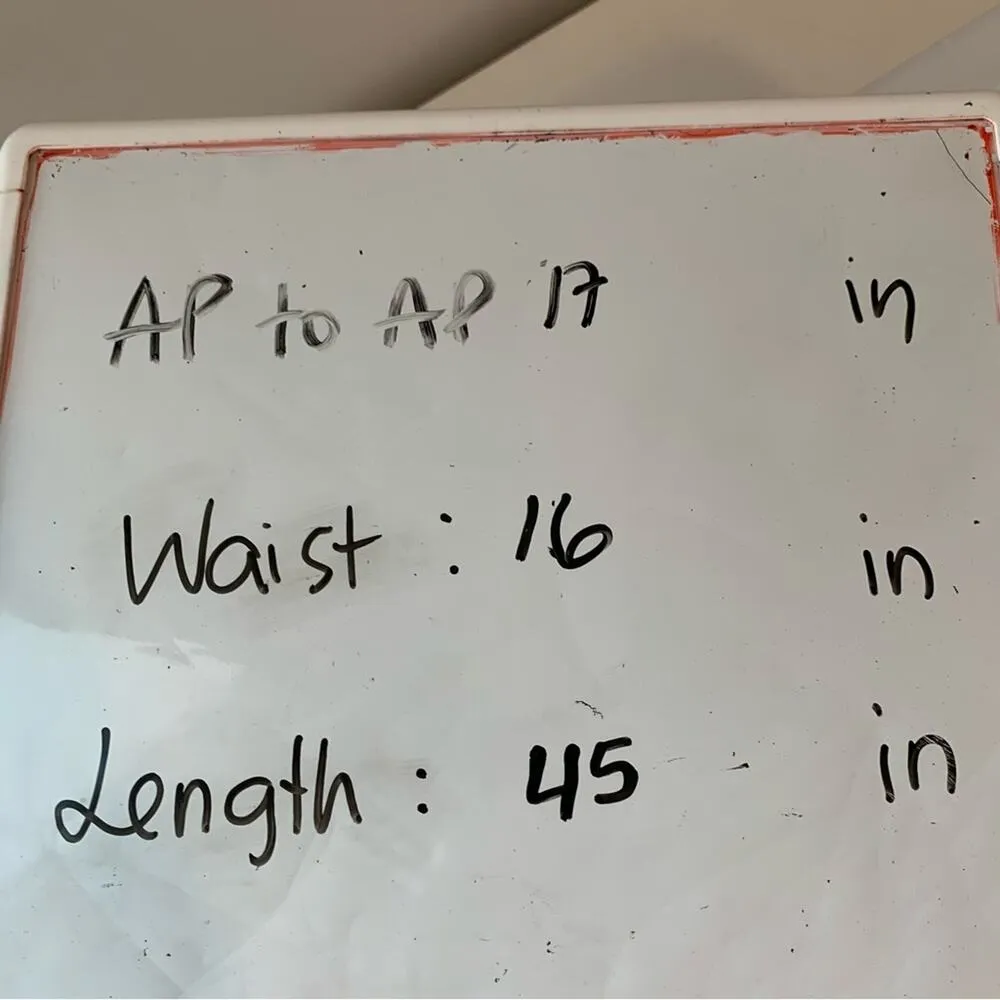 AP to AP 17 in
Waist : 16 in
Length : 45 in